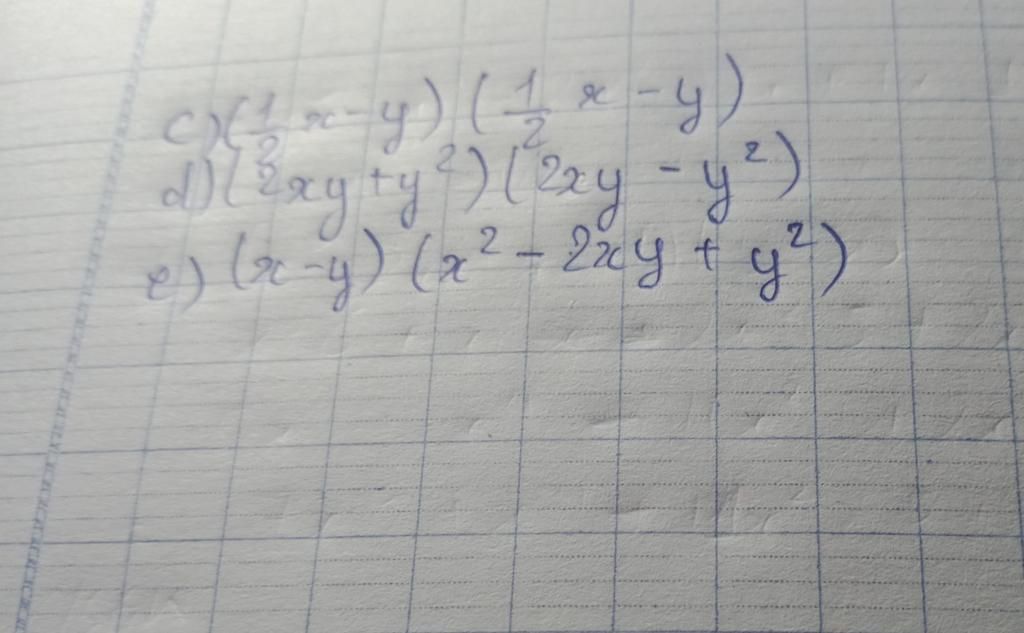 c) (1/2 x - y) (1/2 x - y)
d) (2xy + y²) (2xy - y²)
e) (x - y) (x² - 2xy + y²)